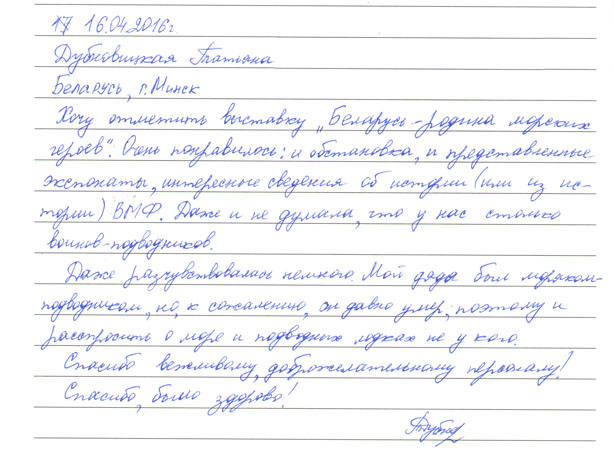 17 16.04.2016г.
Дубковицкая Татьяна
Беларусь, г. Минск
Хочу отметить выставку „Беларусь – родина морских
героев". Очень понравилось: и обстановка, и представленные
экспонаты, интересные сведения об истории (или из ис-
тории) ВМФ. Даже и не думала, что у нас столько
воинов-подводников.
Даже разчувствовалась немного. Мой дядя был моряком-
подводником, но, к сожалению, он давно умер, поэтому и
расспросить о море и подводных лодках не у кого.
Спасибо вежливому, доброжелательному персоналу!
Спасибо, было здорово!